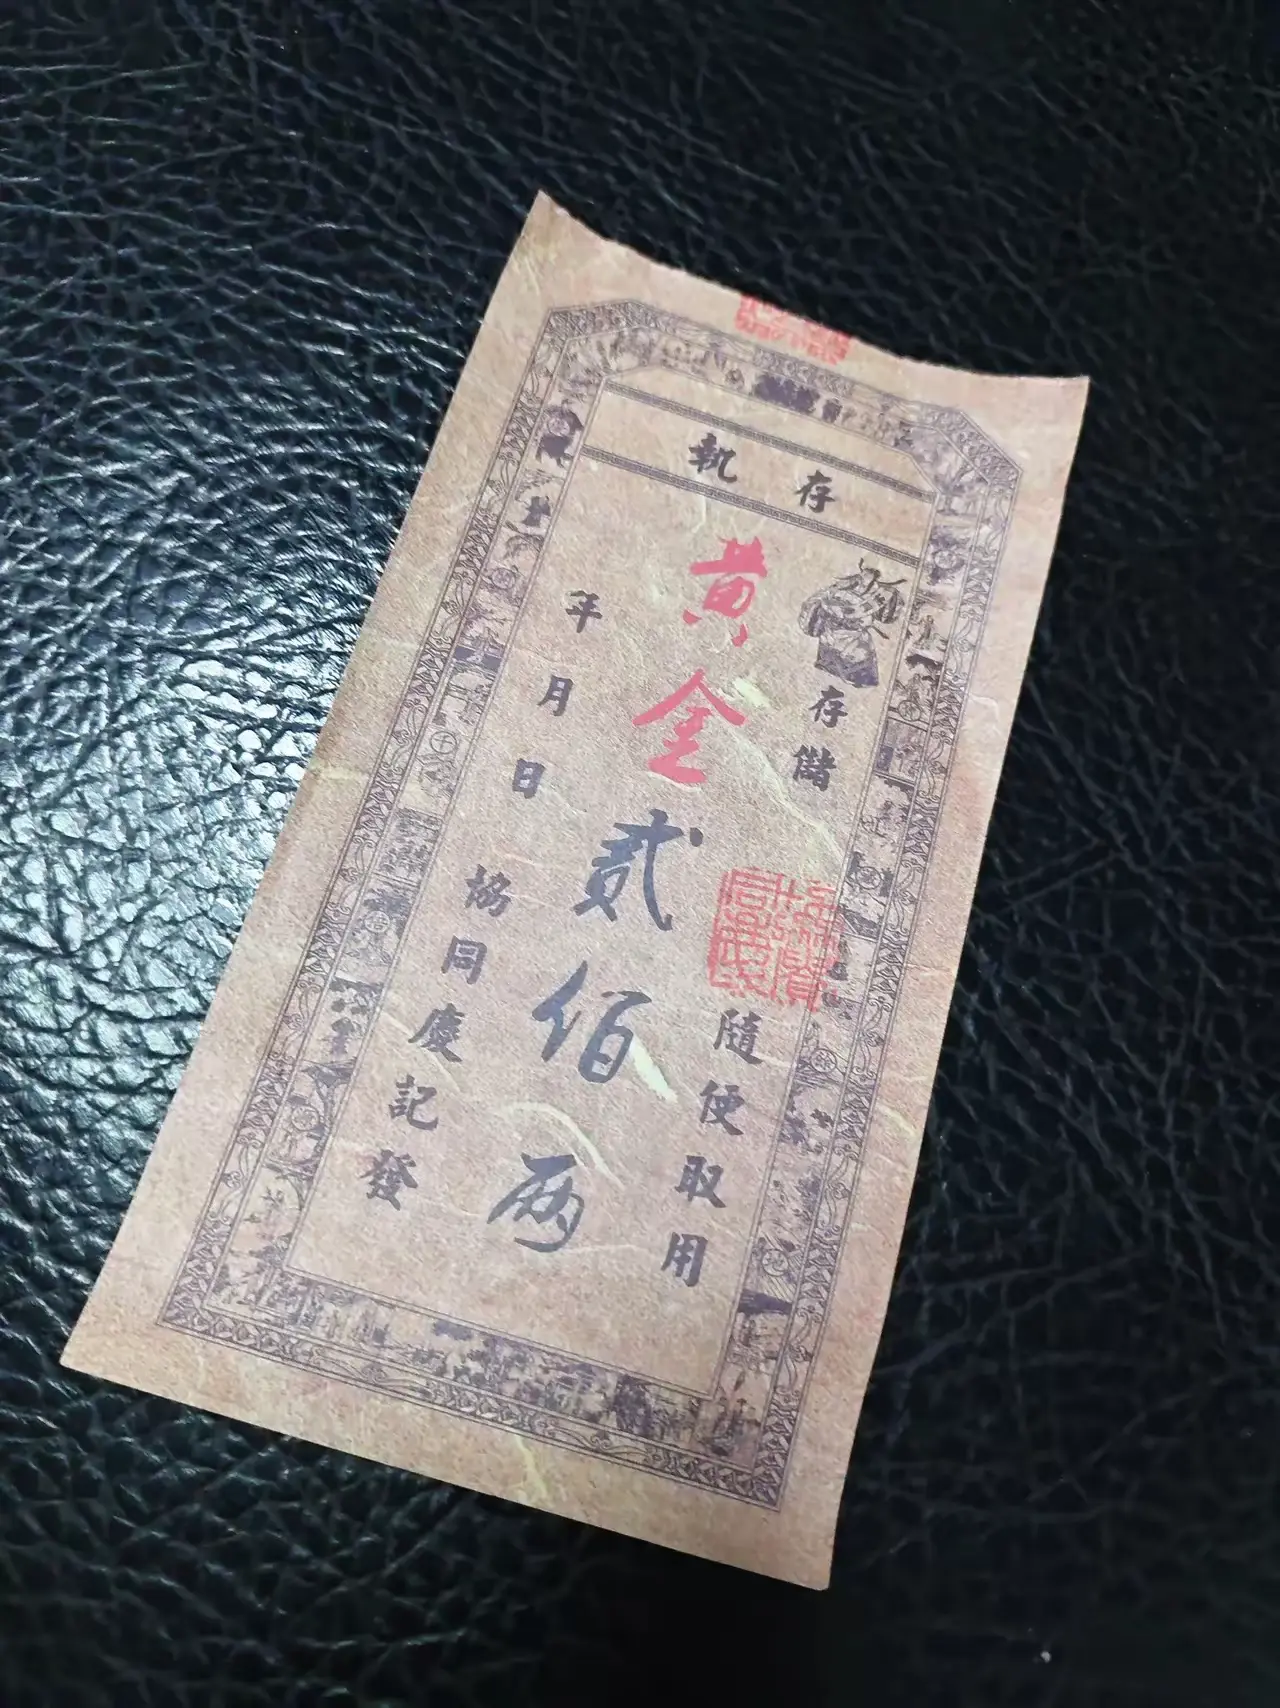 存執
存儲
隨便取用
黄金貳佰两
年月日
協同慶記發